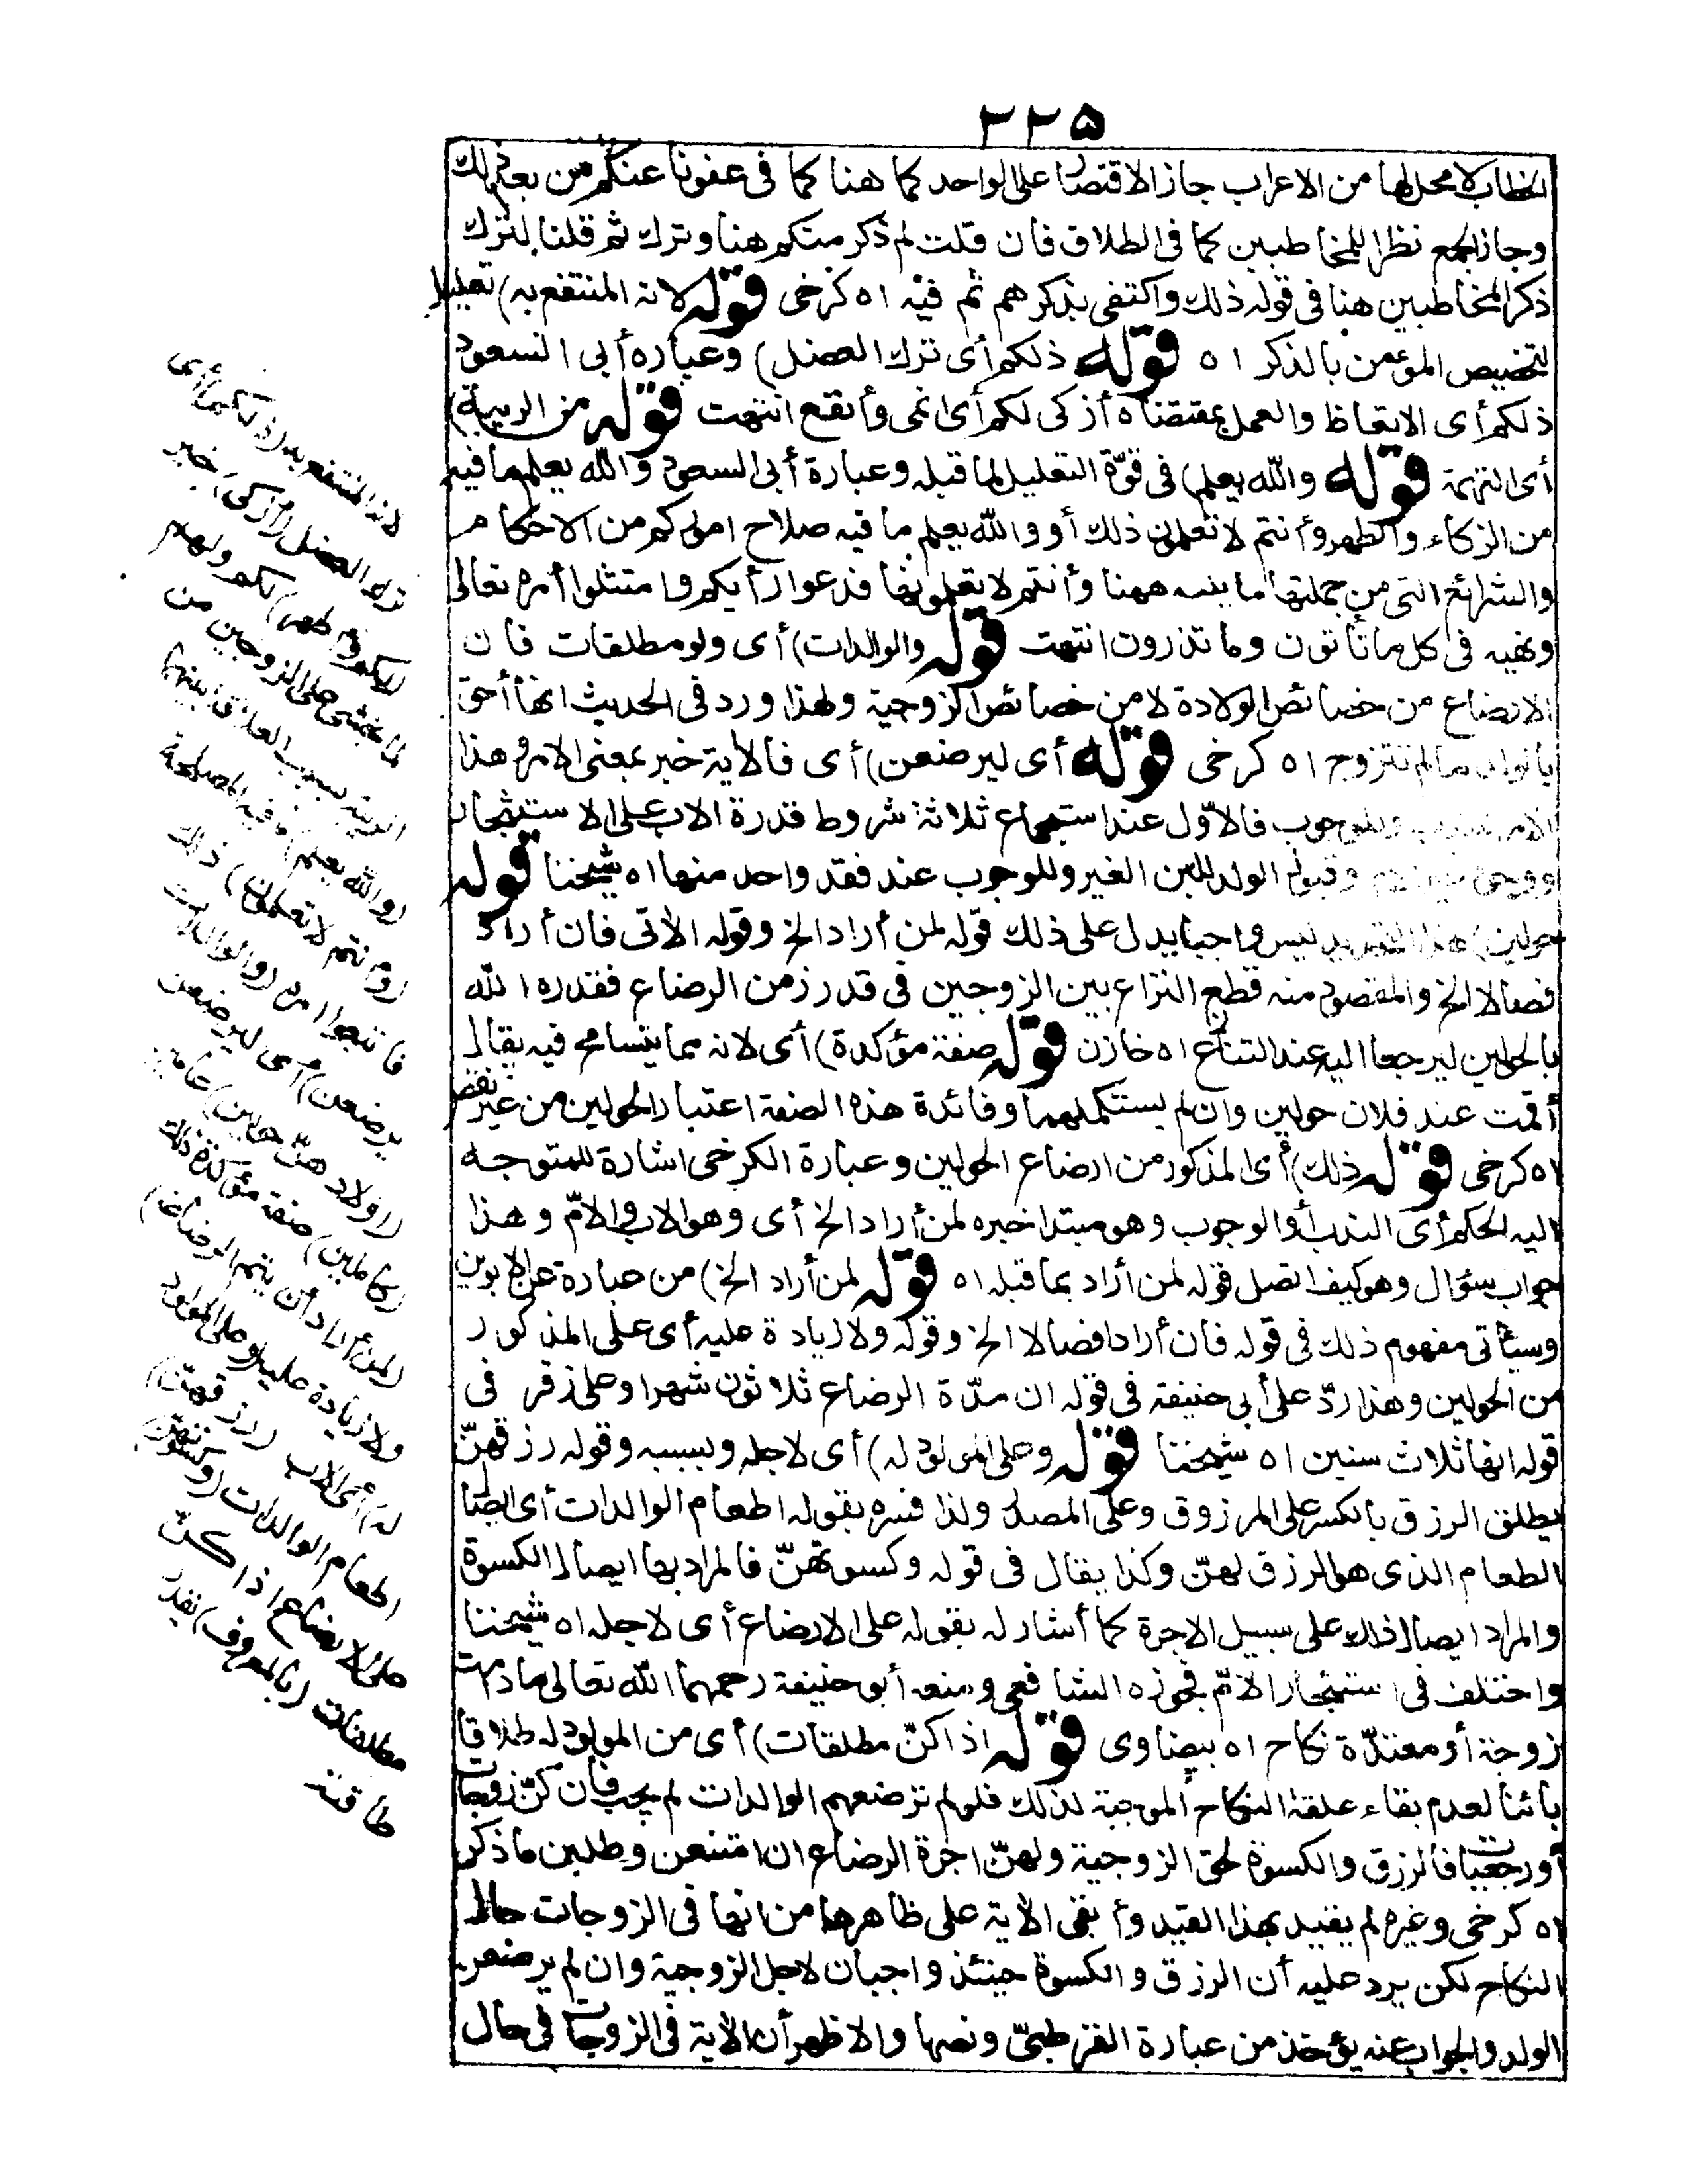 ٢٢٥
الخطاب لا محل لها من الاعراب جاز الاقتصار على الواحد كما هنا كما فى عفونا عنكم من بعد ذلك
وجاز الجمع نظرا للمخاطبين كما فى الطلاق فان قلت لم ذكر منكم هنا وترك ثم قلنا لترك
ذكر المخاطبين هنا فى قوله ذلك واكتفى بذكرهم ثم فيه اه كرخى قوله لانه المنتفع به) تعليل
لتخصيص المؤمن بالذكر اه قوله ذلكم أى ترك العضل) وعباره أبى السعود
ذلكم أى الاتعاظ والعمل بمقتضاه أزكى لكم أى انمى وأنفع انتهت قوله من الريبة)
أى التهمة قوله والله يعلم) فى قوّة التعليل لما قبله وعبارة أبى السعود والله يعلم ما فيه
من الزكاء والطهر وأنتم لا تعلمون ذلك أو والله يعلم ما فيه صلاح اموركم من الاحكام
والشرائع التى من جملتها ما بينه ههنا وأنتم لا تعلمونها فدعوا رأيكم وامتثلوا أمره تعالى
ونهيه فى كل ما تأتون وما تذرون انتهت قوله والوالدات) أى ولو مطلقات فان
الارضاع من خصائص الولادة لا من خصائص الزوجية ولهذا ورد فى الحديث انها أحق
بالولد ما لم تتزوج اه كرخى قوله أى ليرضعن) أى فالآية خبر بمعنى الامر وهذا
الامر للندب وللوجوب فالاوّل عند استجماع ثلاثة شروط قدرة الاب على الاستئجار
ووجود غير الام وقبول الولد للبن الغير وللوجوب عند فقد واحد منها اه شيخنا قوله
حولين) هذا التحديد ليس واجبا يدل على ذلك قوله لمن أراد الخ وقوله الآتى فان أرادا
فصالا الخ والمقصود منه قطع النزاع بين الزوجين فى قدر زمن الرضاع فقدره الله
بالحولين ليرجعا اليه عند التنازع اه خازن قوله صفة مؤكدة) أى لانه مما يتسامح فيه يقال
أقمت عند فلان حولين وان لم يستكملهما وفائدة هذه الصفة اعتبار الحولين من غير نقص
اه كرخى قوله ذلك) أى المذكور من ارضاع الحولين وعبارة الكرخى اشارة للمتوجه
اليه الحكم أى الندب أو الوجوب وهو مبتدا خبره لمن أراد الخ أى وهو الاب والامّ وهذا
جواب سؤال وهو كيف اتصل قوله لمن أراد بما قبله اه قوله لمن أراد الخ) من عبارة عن الابوين
وسيأتى مفهوم ذلك فى قوله فان أرادا فصالا الخ وقوله ولا زيادة عليه أى على المذكور
من الحولين وهذا ردّ على أبى حنيفة فى قوله ان مدّة الرضاع ثلاثون شهرا وعلى زفر فى
قوله انها ثلاث سنين اه شيخنا قوله وعلى المولود له) أى لاجله وبسببه وقوله رزقهنّ
يطلق الرزق بالكسر على المرزوق وعلى المصدر ولذا فسره بقوله اطعام الوالدات أى ايصال
الطعام الذى هو الرزق لهنّ وكذا يقال فى قوله وكسوتهنّ فالمراد بها ايصال الكسوة
والمراد ايصال ذلك على سبيل الاجرة كما أشار له بقوله على الارضاع أى لاجله اه شيخنا
واختلف فى استئجار الامّ فجوزه الشافعى ومنعه أبو حنيفة رحمهما الله تعالى مادامت
زوجة أو معتدّة نكاح اه بيضاوى قوله اذا كنّ مطلقات) أى من المولود له طلاقا
بائنا لعدم بقاء علقة النكاح الموجبة لذلك فلو لم ترضعهم الوالدات لم يجب فان كنّ زوجات
أو رجعيات فالرزق والكسوة لحق الزوجية ولهنّ اجرة الرضاع ان امتنعن وطلبن ما ذكر
اه كرخى وغيره لم يقيد بهذا القيد وأبقى الآية على ظاهرها من انها فى الزوجات حال
النكاح لكن يرد عليه أن الرزق والكسوة حينئذ واجبان لاجل الزوجية وان لم يرضعن
الولد والجواب عنه يؤخذ من عبارة القرطبىّ ونصها والاظهر أن الآية فى الزوجات فى حال
لانه المنتفع به (ذلكم) أى
ترك العضل (أزكى) خير
(لكم وأطهر) لكم ولهم
لما يخشى على الزوجين من
الريبة بسبب العلاقة بينهما
(والله يعلم) ما فيه المصلحة
(وأنتم لا تعلمون) ذلك
فاتبعوا امره (والوالدات
يرضعن) أى ليرضعن
(اولادهنّ حولين) عامين
(كاملين) صفة مؤكدة ذلك
(لمن أراد أن يتم الرضاعة)
ولا زيادة عليه (وعلى المولود
له) أى الاب (رزقهنّ)
اطعام الوالدات (وكسوتهنّ)
على الارضاع اذا كنّ
مطلقات (بالمعروف) بقدر
طاقته